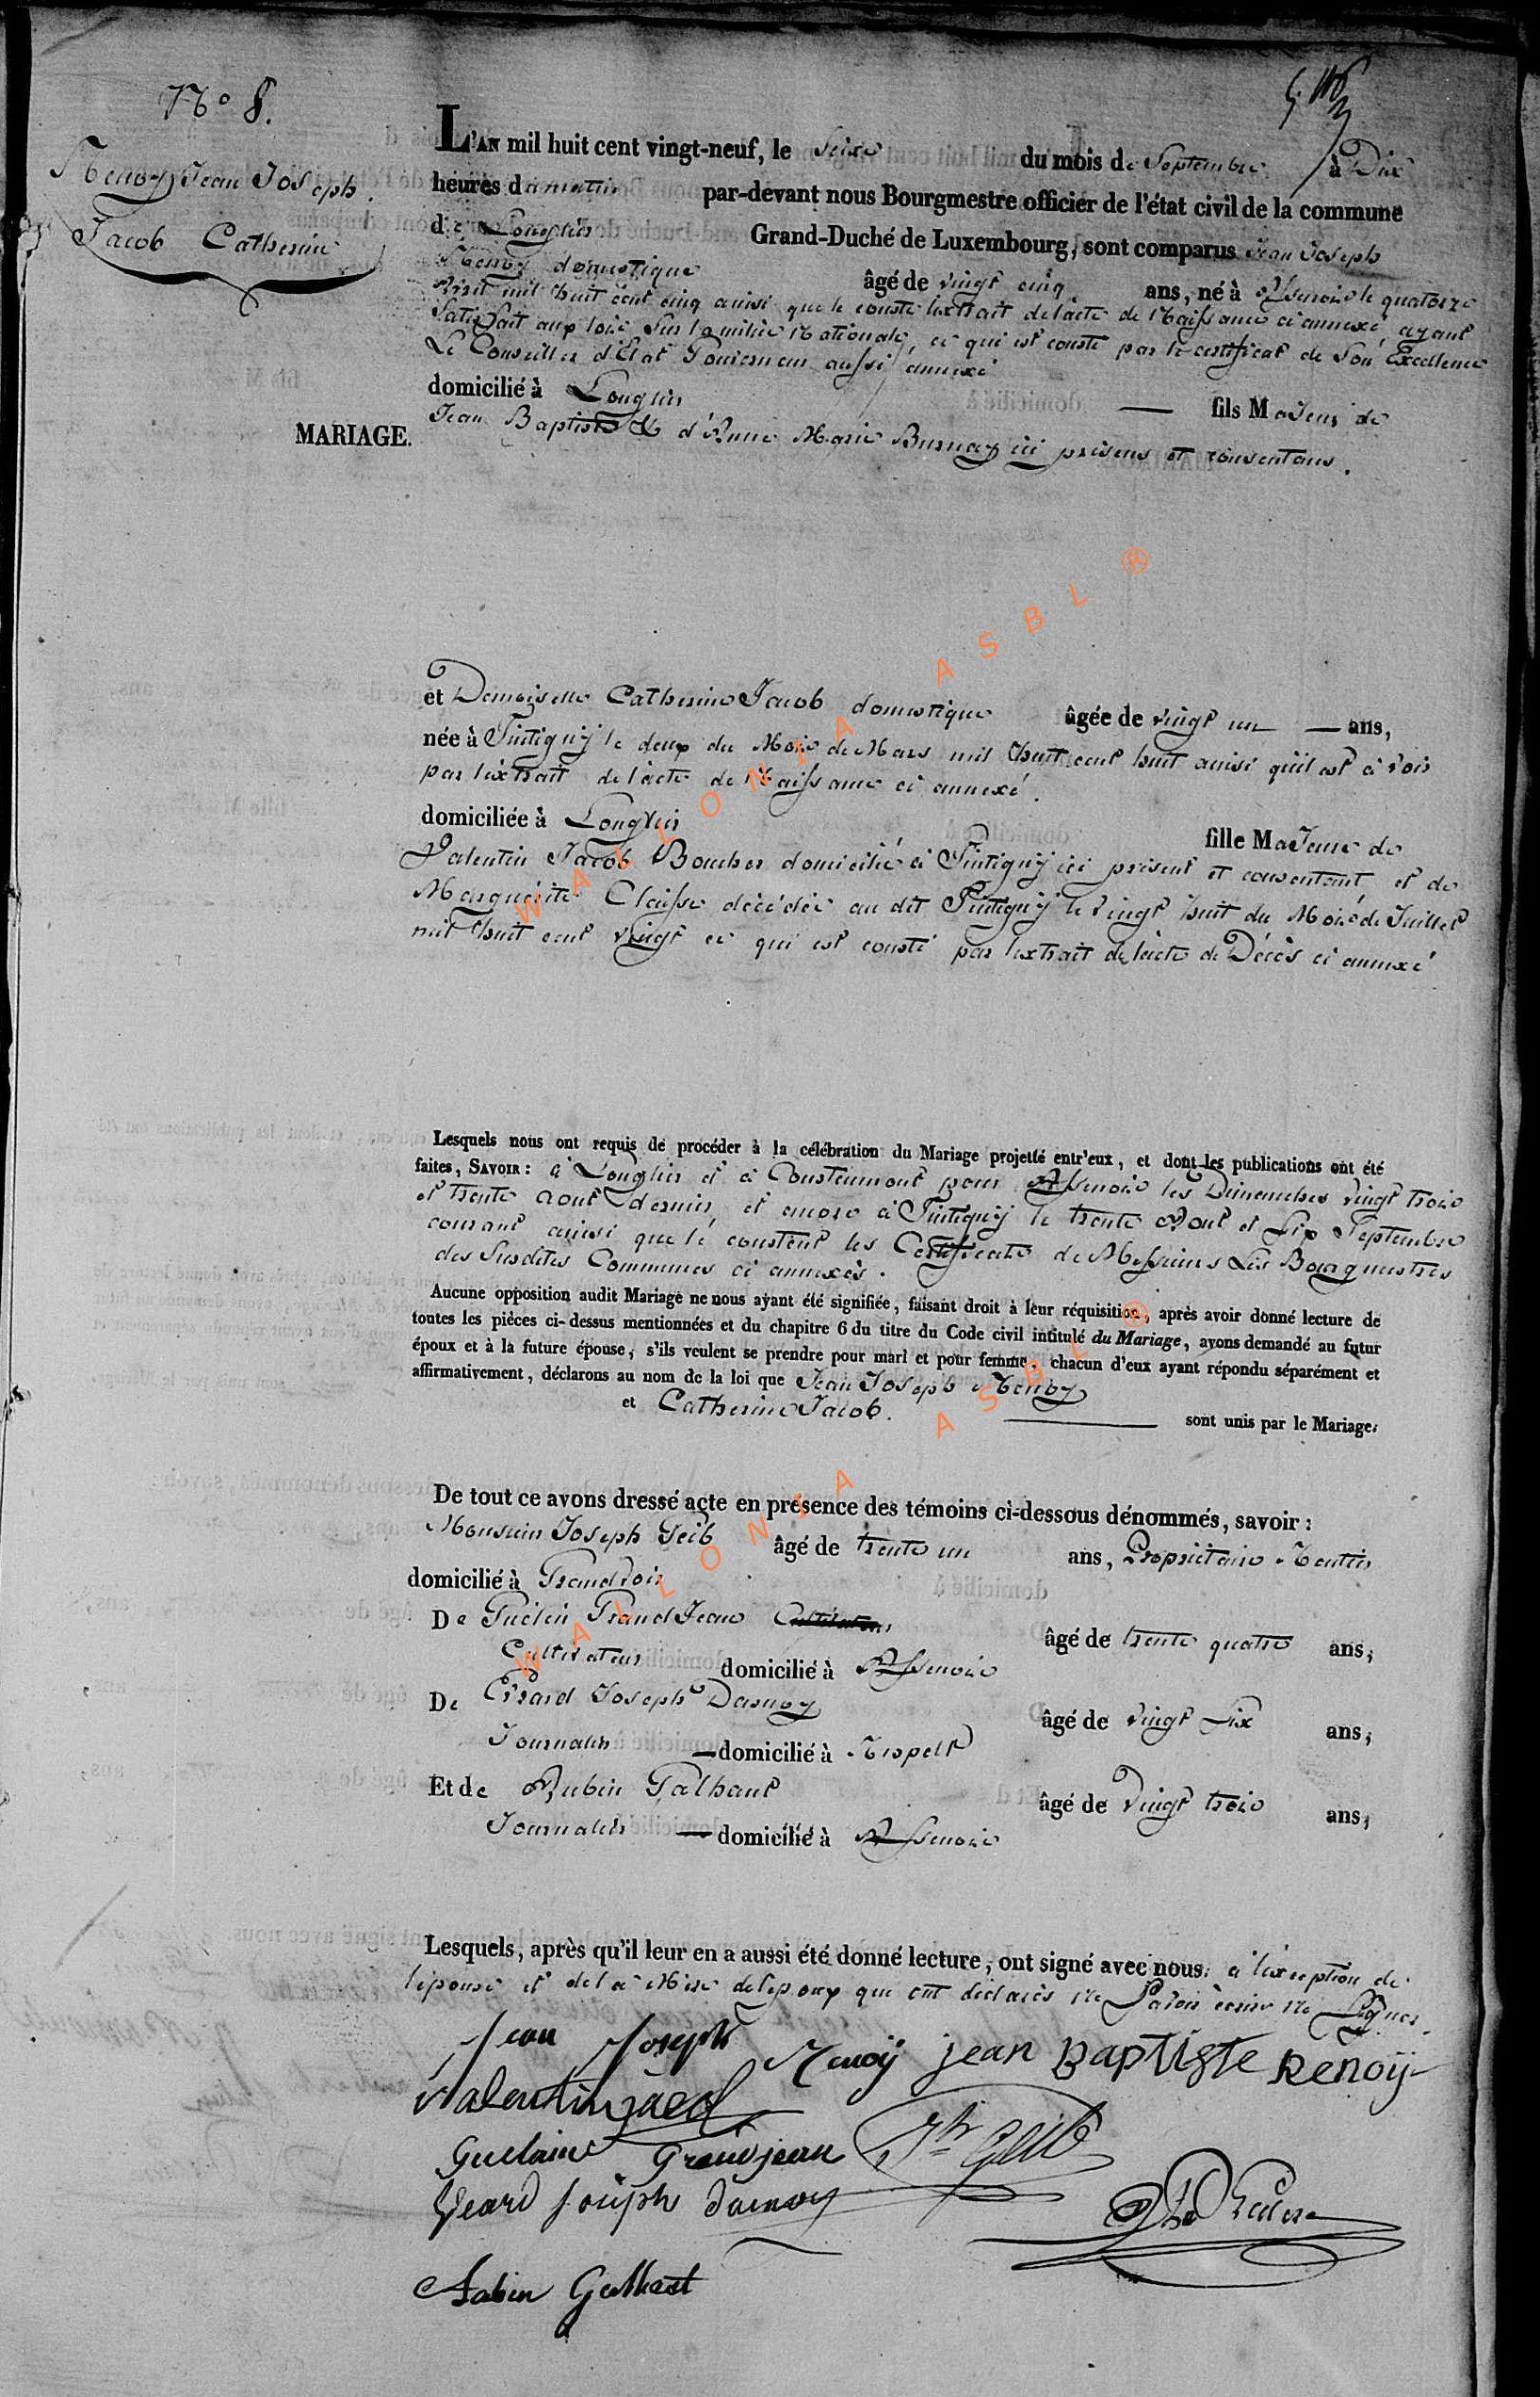 N° 8.
Renoy Jean Joseph.
Jacob Catherine
MARIAGE.
L'AN mil huit cent vingt-neuf, le Seize du mois de Septembre à Dix
heures du matin par-devant nous Bourgmestre officier de l'état civil de la commune
de Longlier Grand-Duché de Luxembourg, sont comparus Jean Joseph
Renoy domestique âgé de vingt cinq ans, né à Assenois le quatorze
Avril mil huit cent cinq ainsi que le conste l'extrait de l'acte de Naissance ci annexé, ayant
Satisfait aux lois Sur la milice Nationale, ce qui est consté par le certificat de Son Excellence
Le Conseiller d'Etat Gouverneur aussi annexé
domicilié à Longlier — fils Majeur de
Jean Baptiste & d'Anne Marie Burnay ici présens et consentans.
et Demoiselle Catherine Jacob domestique âgée de vingt un — ans,
née à Tintigny le deux du Mois de Mars mil huit cent huit ainsi qu'il est à voir
par l'extrait de l'acte de Naissance ci annexé.
domiciliée à Longlier fille Majeure de
Valentin Jacob Boucher domicilié à Tintigny ici présent et consentant, et de
Marguerite Claisse décédée au dit Tintigny le vingt huit du Mois de Juillet
mil huit cent vingt ce qui est consté par l'extrait de l'acte de Décès ci annexé
Lesquels nous ont requis de procéder à la célébration du Mariage projetté entr'eux, et dont les publications ont été
faites, SAVOIR : à Longlier et à Coustumont pour Assenois les Dimanches vingt trois
et trente aout dernier, et encore à Tintigny le trente Aout et Six Septembre
courant ainsi que le constent les Certificats de Messieurs Les Bourgmestres
des Susdites Communes ci annexés.
Aucune opposition audit Mariage ne nous ayant été signifiée, faisant droit à leur réquisition, après avoir donné lecture de
toutes les pièces ci-dessus mentionnées et du chapitre 6 du titre du Code civil intitulé du Mariage, avons demandé au futur
époux et à la future épouse, s'ils veulent se prendre pour mari et pour femme, chacun d'eux ayant répondu séparément et
affirmativement, déclarons au nom de la loi que Jean Joseph Renoy
et Catherine Jacob. — sont unis par le Mariage.
De tout ce avons dressé acte en présence des témoins ci-dessous dénommés, savoir :
Monsieur Joseph Geib âgé de trente un ans, Propriétaire Rentier
domicilié à Grandvoir
De Guelin Grand Jean Cultivateur âgé de trente quatre ans,
Cultivateur domicilié à Assenois
De Erard Joseph Dasnoy âgé de vingt Six ans,
Journalier — domicilié à Respelt
Et de Aubin Galhaut âgé de Vingt trois ans,
Journalier — domicilié à Assenois
Lesquels, après qu'il leur en a aussi été donné lecture, ont signé avec nous, à l'exception de
l'épouse et de la Mère de l'époux qui ont déclarés Ne Savoir écrire Ni Signer.
Jean Joseph Renoÿ jean Baptiste Renoÿ
Valentin jacob
Guelain Grandjean Jh Geib
Erard Joseph dasnoy
Aubin Galhaut
WALLONIA ASBL ®
WALLONIA ASBL ®